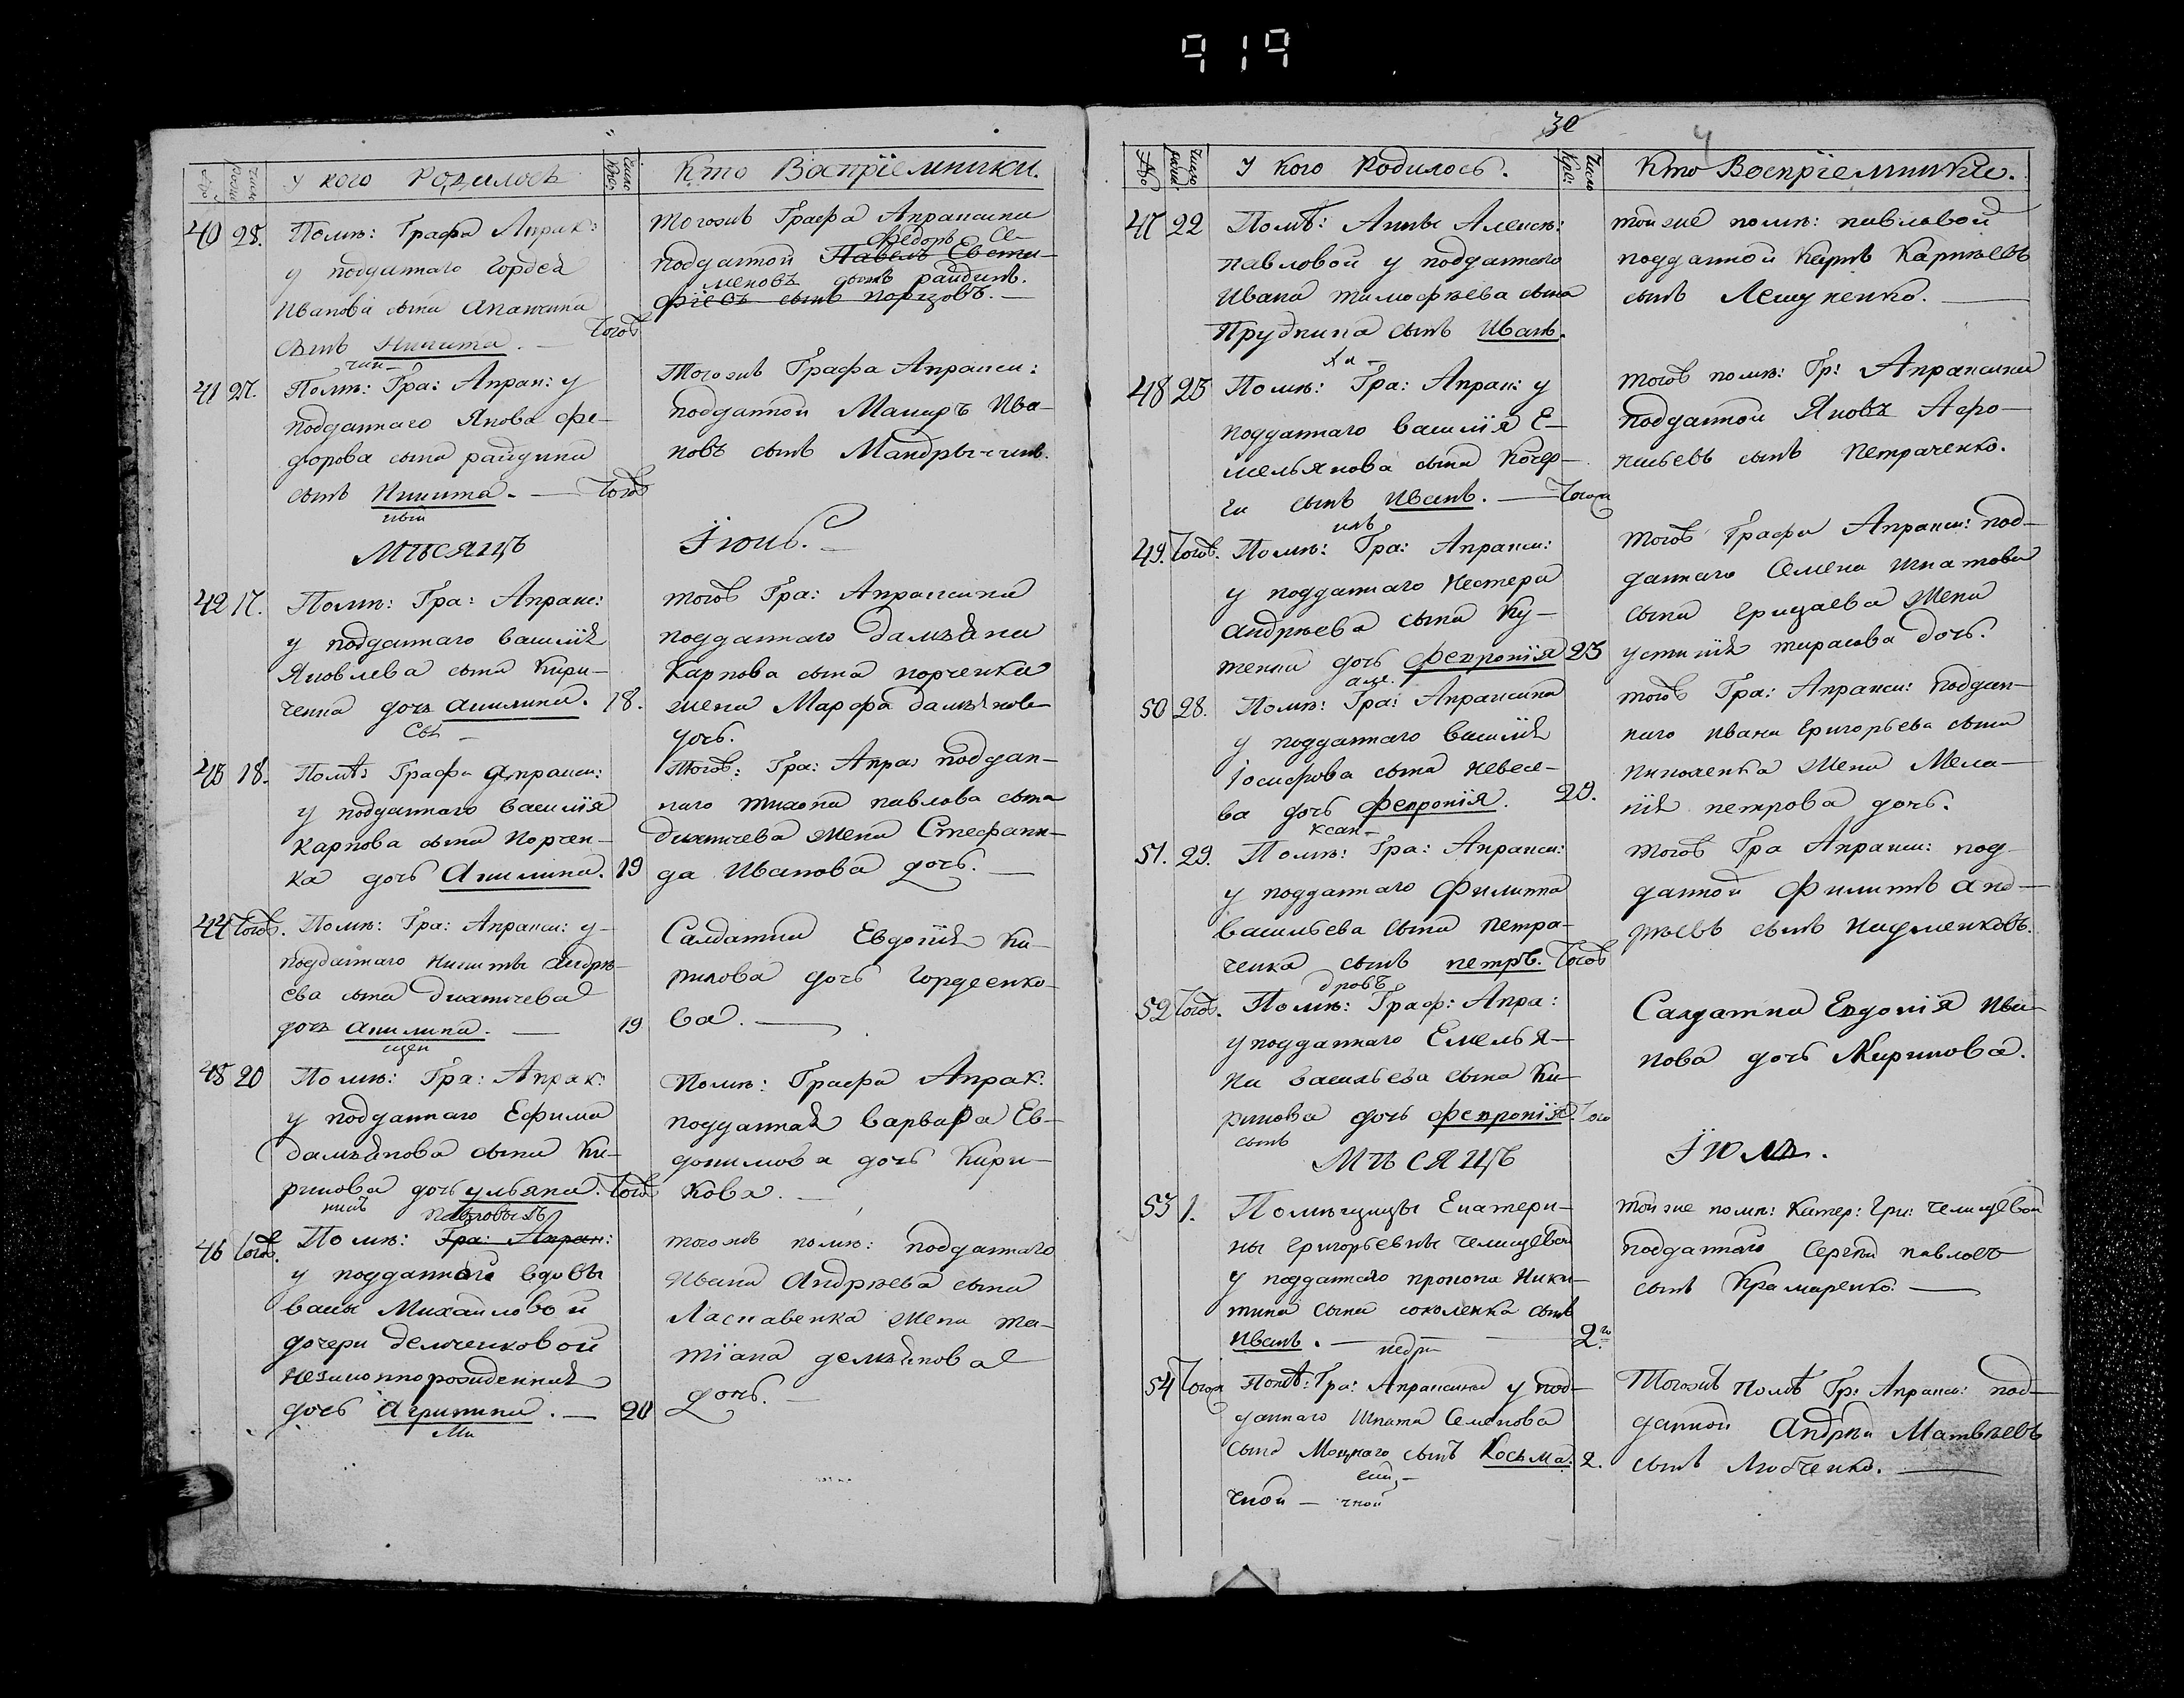 919
30
4
№
Число рожд
У кого Родилось
Число Крещ
Кто Воспрiемники.
40 25. Помѣ: Графа Апрак:
у подданнаго Гордея
Иванова сына
сынъ Никита. — Тогож
Тогожъ Графа Апраксина
Федоръ Се-
подданной Павелъ Евста-
меновъ сынъ райдинъ.
фiевъ сынъ —
41 27. Помѣ: Гра: Апрак: у
подданнаго Якова Фе-
дорова сына райдина
сынъ Никита. — Тогож
Тогожъ Графа Апракси:
подданной Макаръ Ива-
новъ сынъ
Мѣсяцъ Iюнь.
42 17. Помѣ: Гра: Апракс:
у подданнаго василiя
Яковлева сына Кири-
ченка дочь акилина. 18.
тогож Гра: Апраксина
подданнаго дамѣяна
Карпова сына порченка
жена Марфа дамѣянова
дочь.
43 18. Помѣ: Графа Апракси:
у подданнаго василiя
карпова сына Порчен-
ка дочь Акилина. 19
Тогож: Гра: Апра: поддан-
наго тихона павлова сына
жена Стефани-
да Иванова дочь. —
44 Тогож. Помѣ: Гра: Апракси: у
подданнаго никиты андрѣ-
ева сына
дочь акилина. — 19
Салдатка Евдокiя Ки-
рикова дочь Гордеенко-
ва. —
45 20 Помѣ: Гра: Апрак:
у подданнаго Ефима
дамѣянова сына Ки-
рикова дочь ульяна. Тогож
Помѣ: Графа Апрак:
подданная варвара Ев-
докимова дочь Кири-
кова. —
46 Тогож. Помѣ: Гра: Апрак:
у подданнаго вдовы
васы Михайловой
дочери делченковой
незаконнорожденная
дочь Агрипина. — 20
тогожъ помѣ: подданнаго
Ивана Андрѣева сына
Ласкавенка жена та-
тiана демѣянова
дочь. —
№
Число рожд
У кого Родилось.
Число Кре:
Кто Воспрiемники.
47 22 Помѣ: Анны Алексѣ:
павловой у подданнаго
Ивана тимофѣева сына
Прудкина сынъ Иванъ.
той же помѣ: павловой
подданной Карпъ Карпѣевъ
сынъ Лешуненко. —
48 23 Помѣ: Гра: Апрак: у
подданнаго василiя Е-
мельянова сына Кочер-
ги сынъ иванъ. — Тогож
тогож помѣ: Гр: Апраксина
подданной Яковъ Афо-
насьевъ сынъ Петраченко.
49. Тогож. Помѣ: Гра: Апракси:
у подданнаго Нестера
андрѣева сына Ку-
тенка дочь февронiя 23
тогож Графа Апракси: под-
даннаго Семена Игнатова
сына грицаева жена
устинiя тарасова дочь.
50 28. Помѣ: Гра: Апраксина
у подданнаго василiя
Iосифова сына невесе-
ва дочь февронiя. 29.
тогож Гра: Апракси: поддан-
наго ивана григорьева сына
жена Мела-
нiя петрова дочь.
51. 29. Помѣ: Гра: Апракси:
у подданнаго Филиппа
васильева сына Петра-
ченка сынъ петръ. Тогож
тогож Гра Апракси: под
данной Филиппъ анд-
рѣевъ сынъ
52 Тогож. Помѣ: Граф: Апра:
у подданнаго Емелья-
на васильева сына Ки-
рикова дочь февронiя. Того
Салдатка Евдокiя Ива-
нова дочь Кирикова.
Мѣсяцъ Iюль.
53 1. Помѣщицы Екатери-
ны григорьевны челищевой
у подданнаго прокопа Ники-
тина сына соколенка сынъ
иванъ. — 2го
той же помѣ: Катер: Гри: челищевой
подданнаго Сергѣй павловъ
сынъ Крамаренко. —
54 Тогож Помѣ: Гра: Апраксина у под-
даннаго Игната Семенова
сына сынъ Косьма. 2.
Тогожъ Помѣ Гр: Апракси: под-
данной Андрѣй Матвѣевъ
сынъ Любченко. —